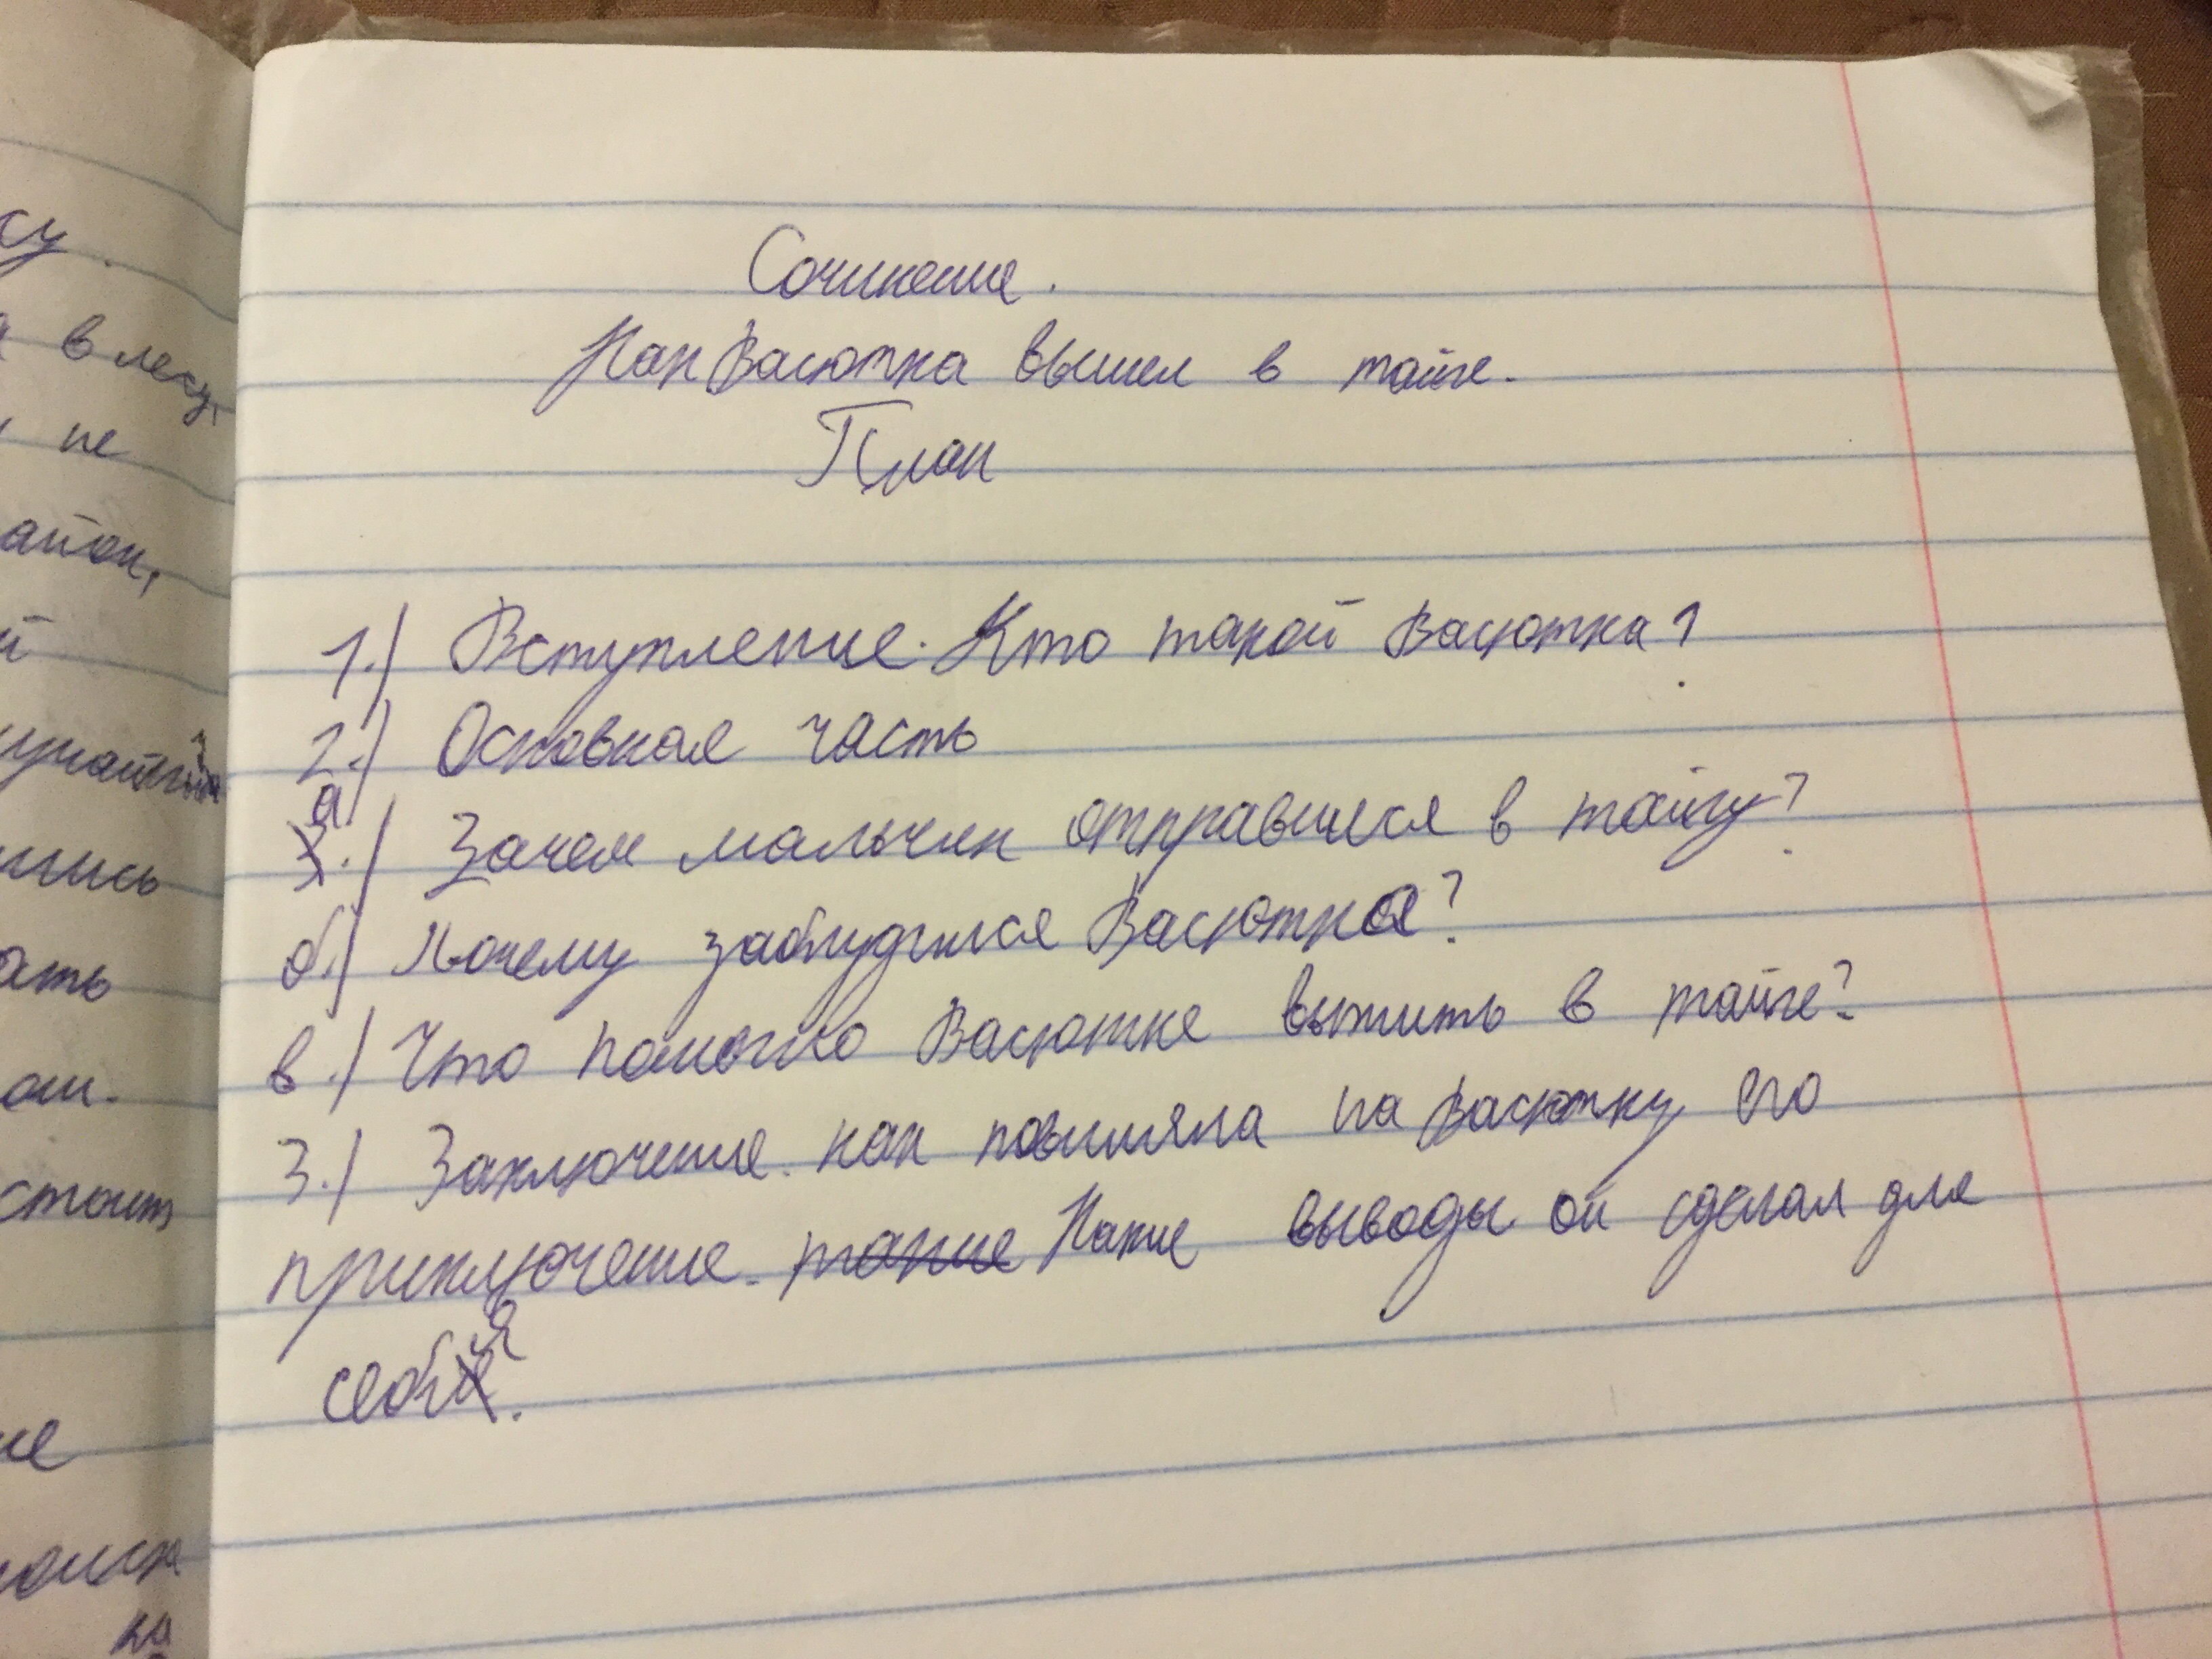 су
в лесу,
не
ать
стоит
на
Сочинение.
Как Васютка вышел в тайге.
План
1.) Вступление. Кто такой Васютка?
2.) Основная часть
а.) Зачем мальчик отправился в тайгу?
б.) Почему заблудился Васютка?
в.) Что помогло Васютке выжить в тайге?
3.) Заключение. как повлияла на Васютку его
приключение. такие Какие выводы он сделал для
себя.